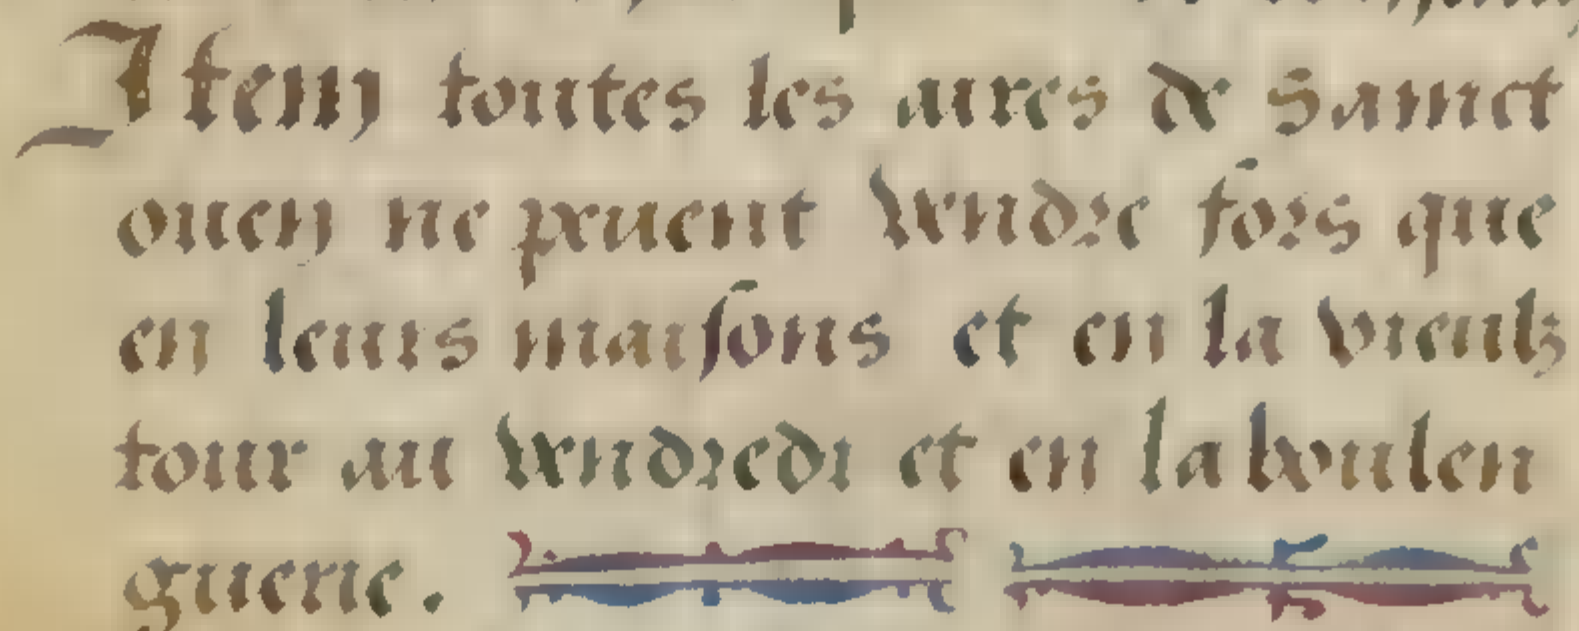 Item toutes les aires de Sainct
ouen ne peuent vendre fors que
en leurs maisons et en la vieulz
tour au vendredi et en la boulen
guerie.